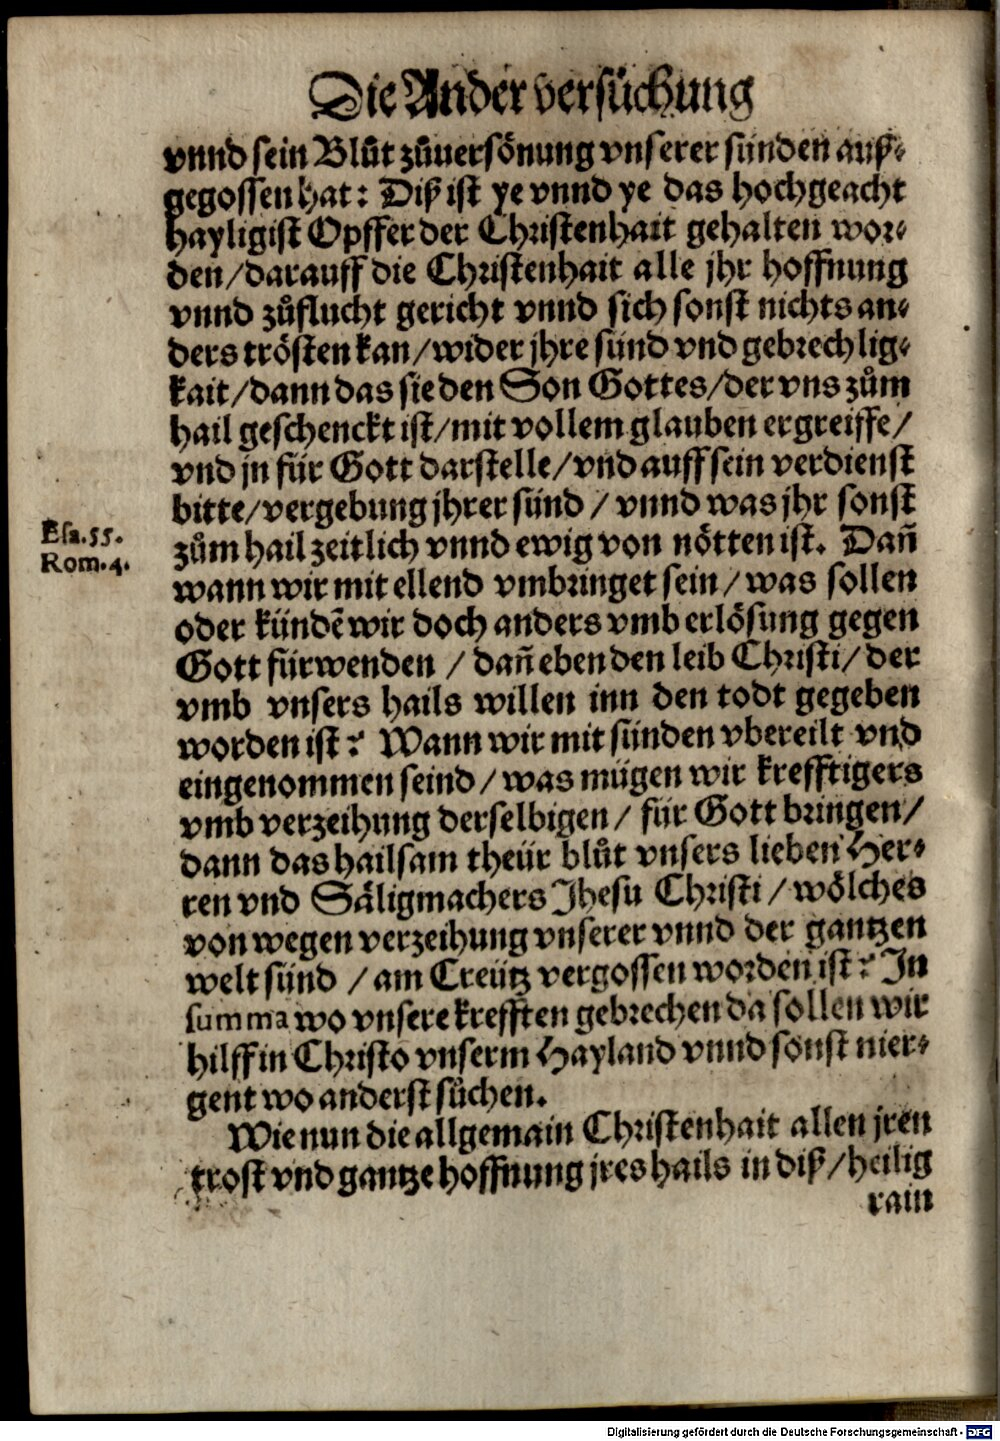 Die Ander versůchung
vnnd sein Blůt zůuersönung vnserer sünden auß-
gegossen hat: Diß ist ye vnnd ye das hochgeacht
hayligist Opffer der Christenhait gehalten wor-
den/darauff die Christenhait alle jhr hoffnung
vnnd zůflucht gericht vnnd sich sonst nichts an-
ders trösten kan/wider jhre sünd vnd gebrechlig-
kait/dann das sie den Son Gottes/der vns zům
hail geschenckt ist/mit vollem glauben ergreiffe/
vnd jn für Gott darstelle/vnd auff sein verdienst
bitte/vergebung jhrer sünd / vnnd was jhr sonst
Esa.55.
Rom.4.
zům hail zeitlich vnnd ewig von nötten ist. Dañ
wann wir mit ellend vmbringet sein/was sollen
oder kündē wir doch anders vmb erlösung gegen
Gott fürwenden / dañ eben den leib Christi/der
vmb vnsers hails willen inn den todt gegeben
worden ist? Wann wir mit sünden vbereilt vnd
eingenommen seind/was mügen wir krefftigers
vmb verzeihung derselbigen/ für Gott bringen/
dann das hailsam theür blůt vnsers lieben Her-
ren vnd Säligmachers Jhesu Christi/wölches
von wegen verzeihung vnserer vnnd der gantzen
welt sünd /am Creütz vergossen worden ist? In
summa wo vnsere krefften gebrechen da sollen wir
hilff in Christo vnserm Hayland vnnd sonst nier-
gent wo anderst sůchen.
Wie nun die allgemain Christenhait allen jren
trost vnd gantze hoffnung jres hails in diß/heilig
rain
Digitalisierung gefördert durch die Deutsche Forschungsgemeinschaft - DFG